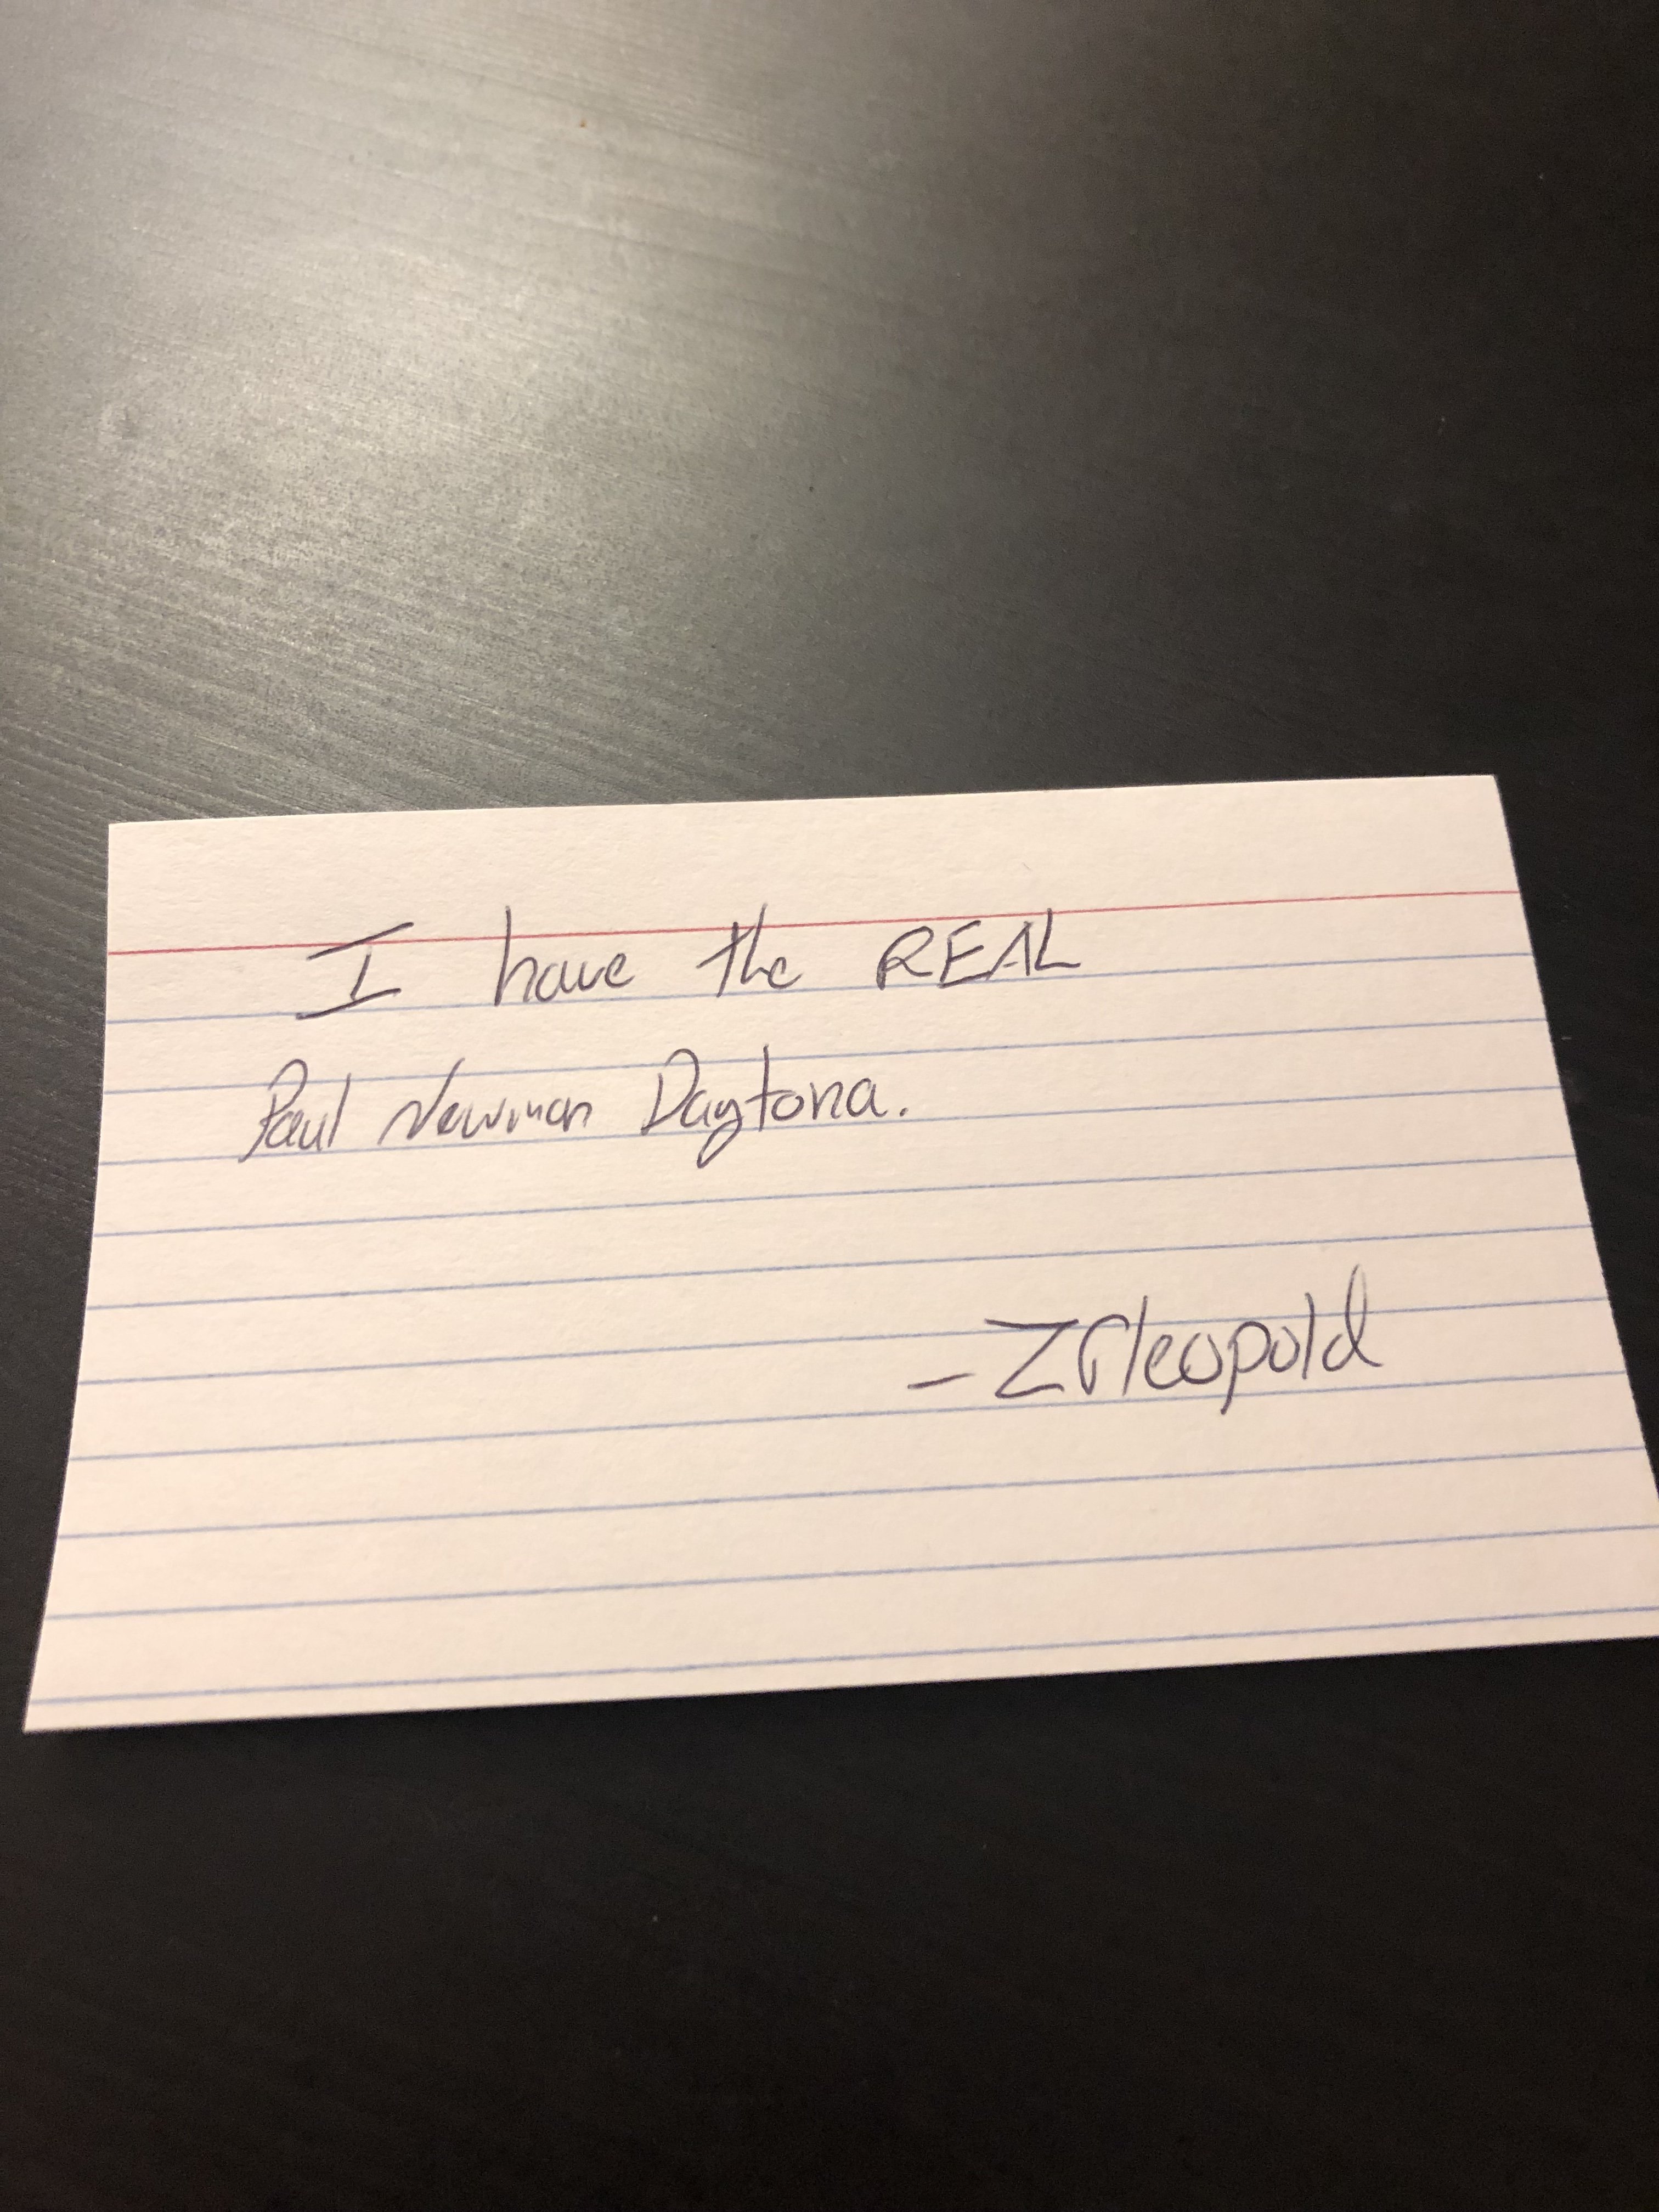 I have the REAL
Paul Newman Daytona.
- ZRleopold